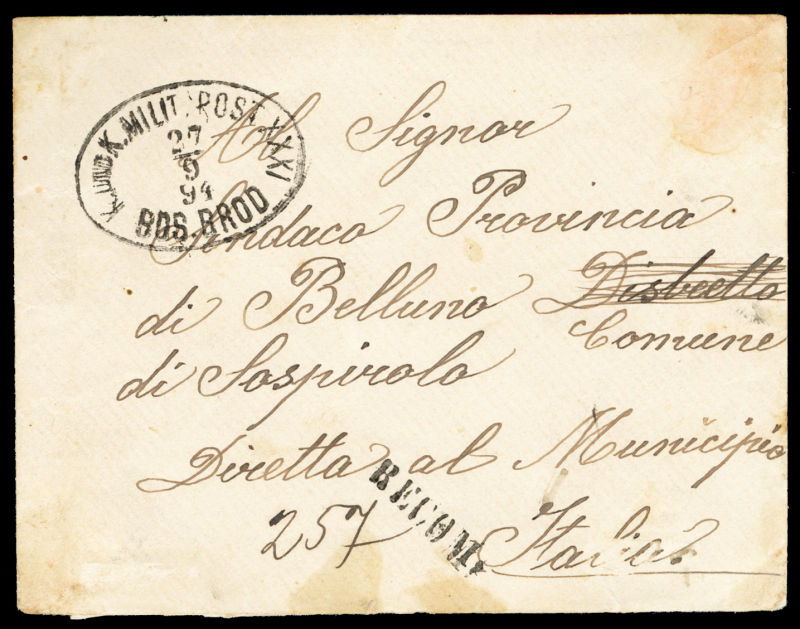 K. UND K. MILIT. POST XXXI
27
9
94
BOS. BROD
Al Signor
Sindaco Provincia
di Belluno Distretto
Comune
di Sospirolo
Diretta al Municipio
257 RECOM.
Italia